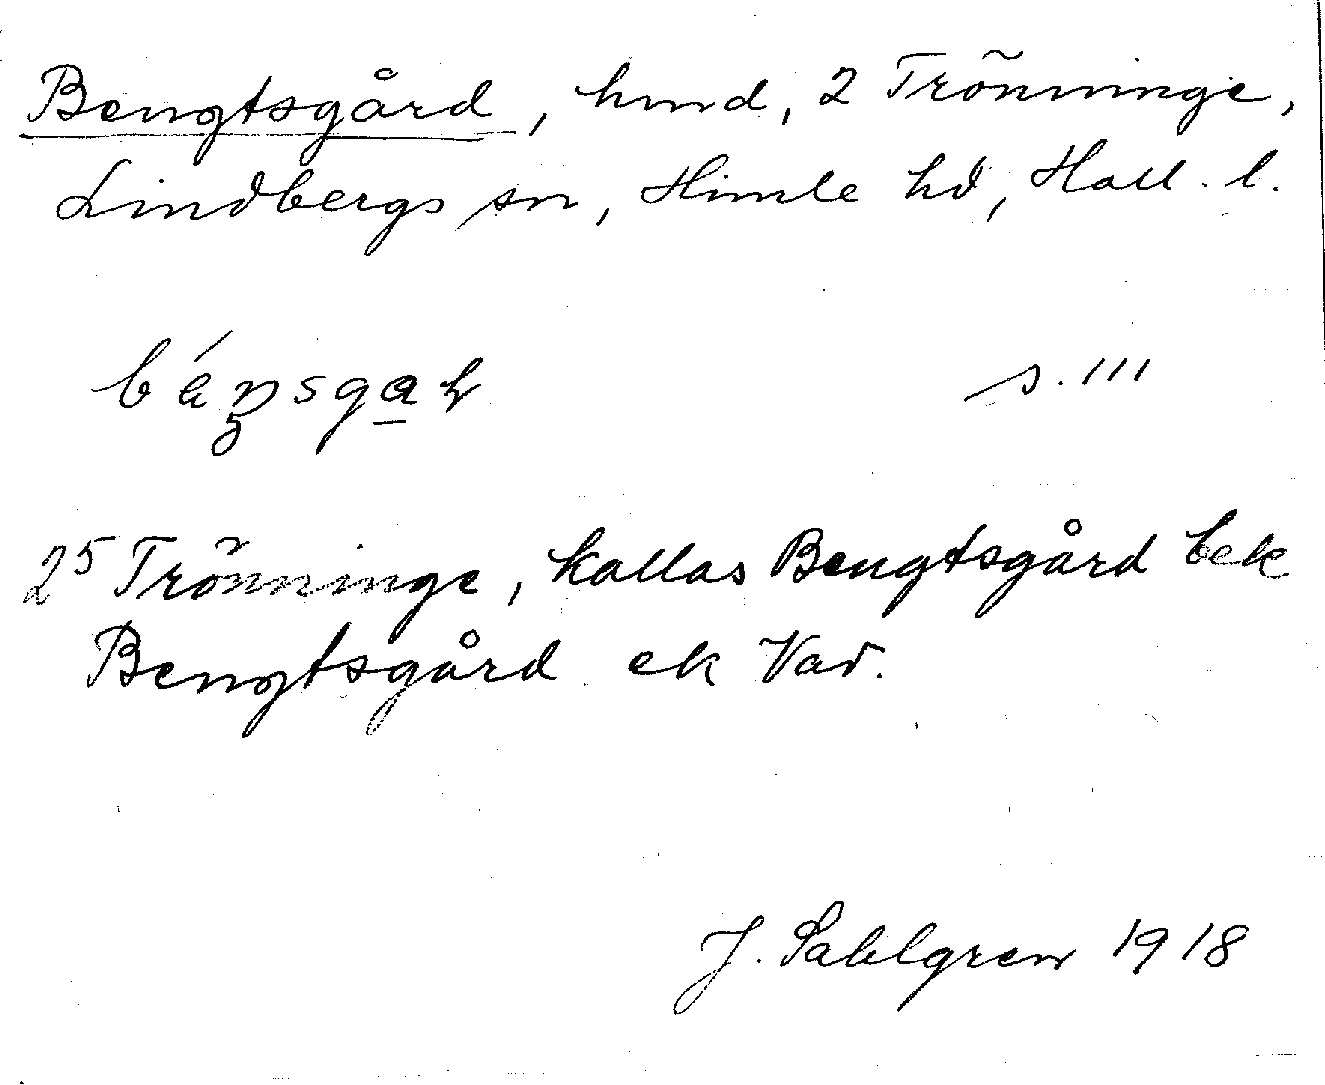 Bengtsgård, hmd, 2 Trönninge,
Lindbergs sn, Himle hd, Hall. l.
s. 111
2⁵ Trönninge, kallas Bengtsgård bek
Bengtsgård ek Vad.
J. Sahlgren 1918